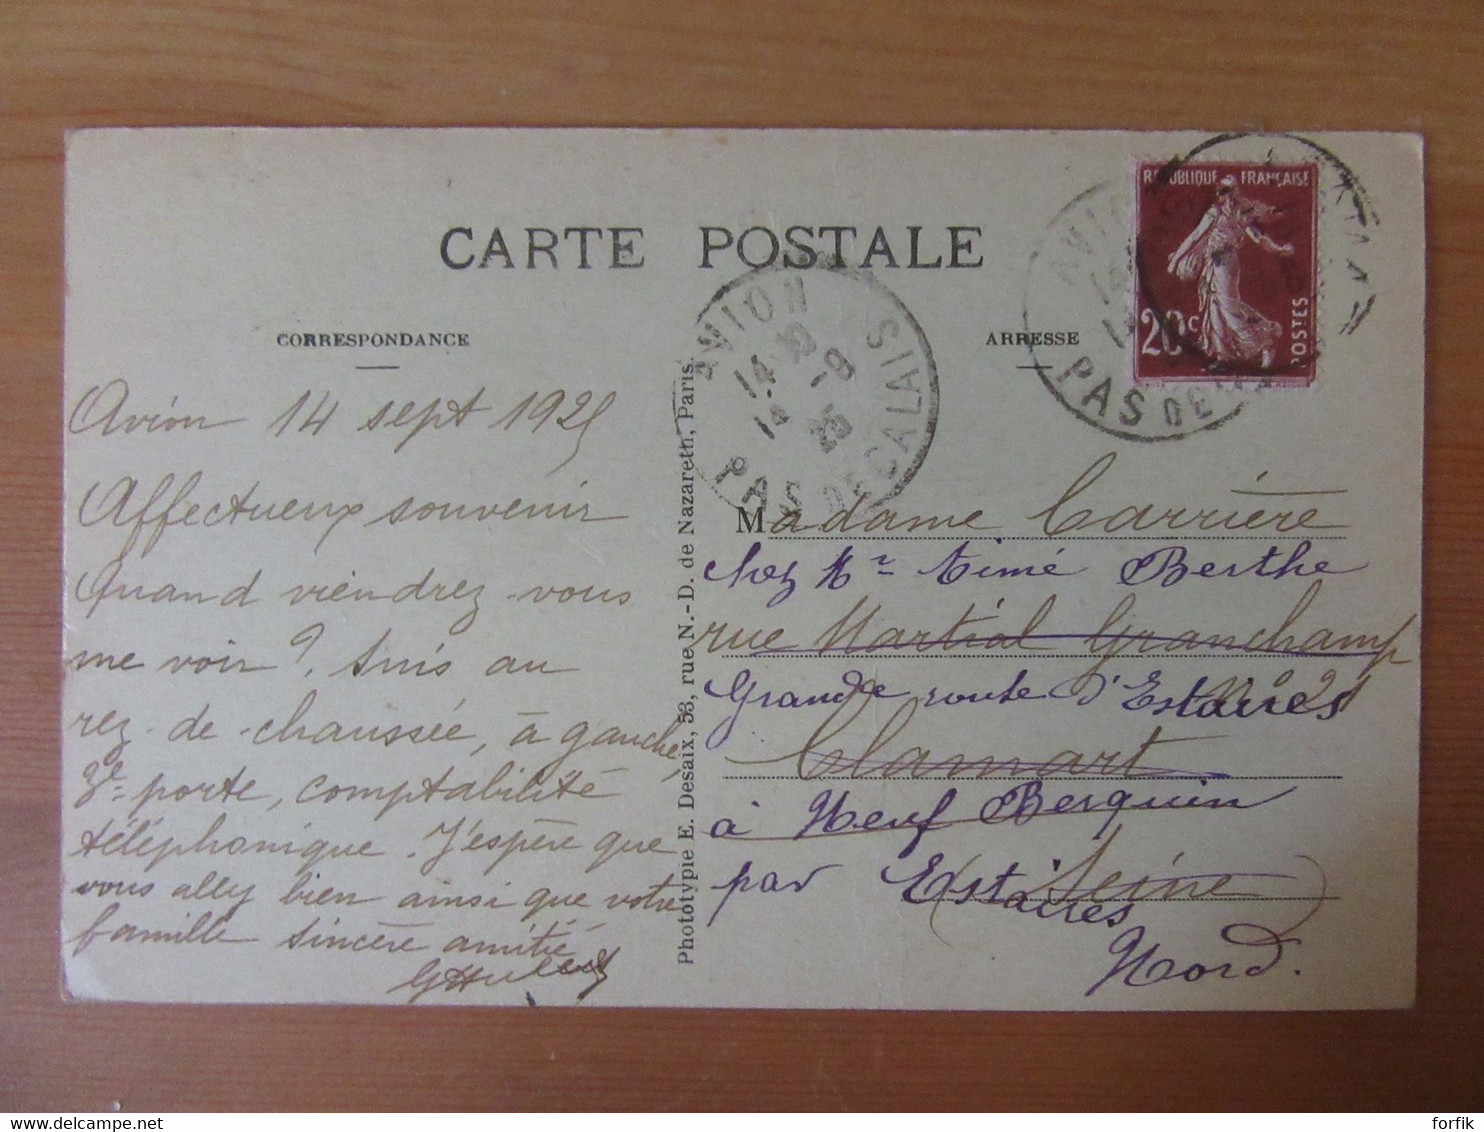 CARTE POSTALE
CORRESPONDANCE
Avion 14 sept 1925
Affectueux souvenir
Quand viendrez-vous
me voir? Suis au
rez-de-chaussée, à gauche,
3e porte, comptabilité
téléphonique. J'espère que
vous allez bien ainsi que votre
famille sincère amitié
Phototypie E. Desaix, 53, rue N.-D. de Nazareth, Paris.
AVION
PAS DE CALAIS
14 30
14 -9
25
ADRESSE
REPUBLIQUE FRANÇAISE
20c
POSTES
AVION
PAS DE
Madame Carrière
chez Mr Aimé Berthe
rue Martial Granchamp
No 21
Grande route d'Estaires
Clamart
à Neuf Berquin
(Seine)
par Estaires
Nord.
forfik